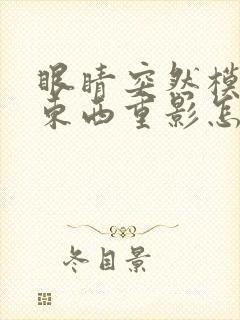 眼睛突然模
东西重影怎
冬目景